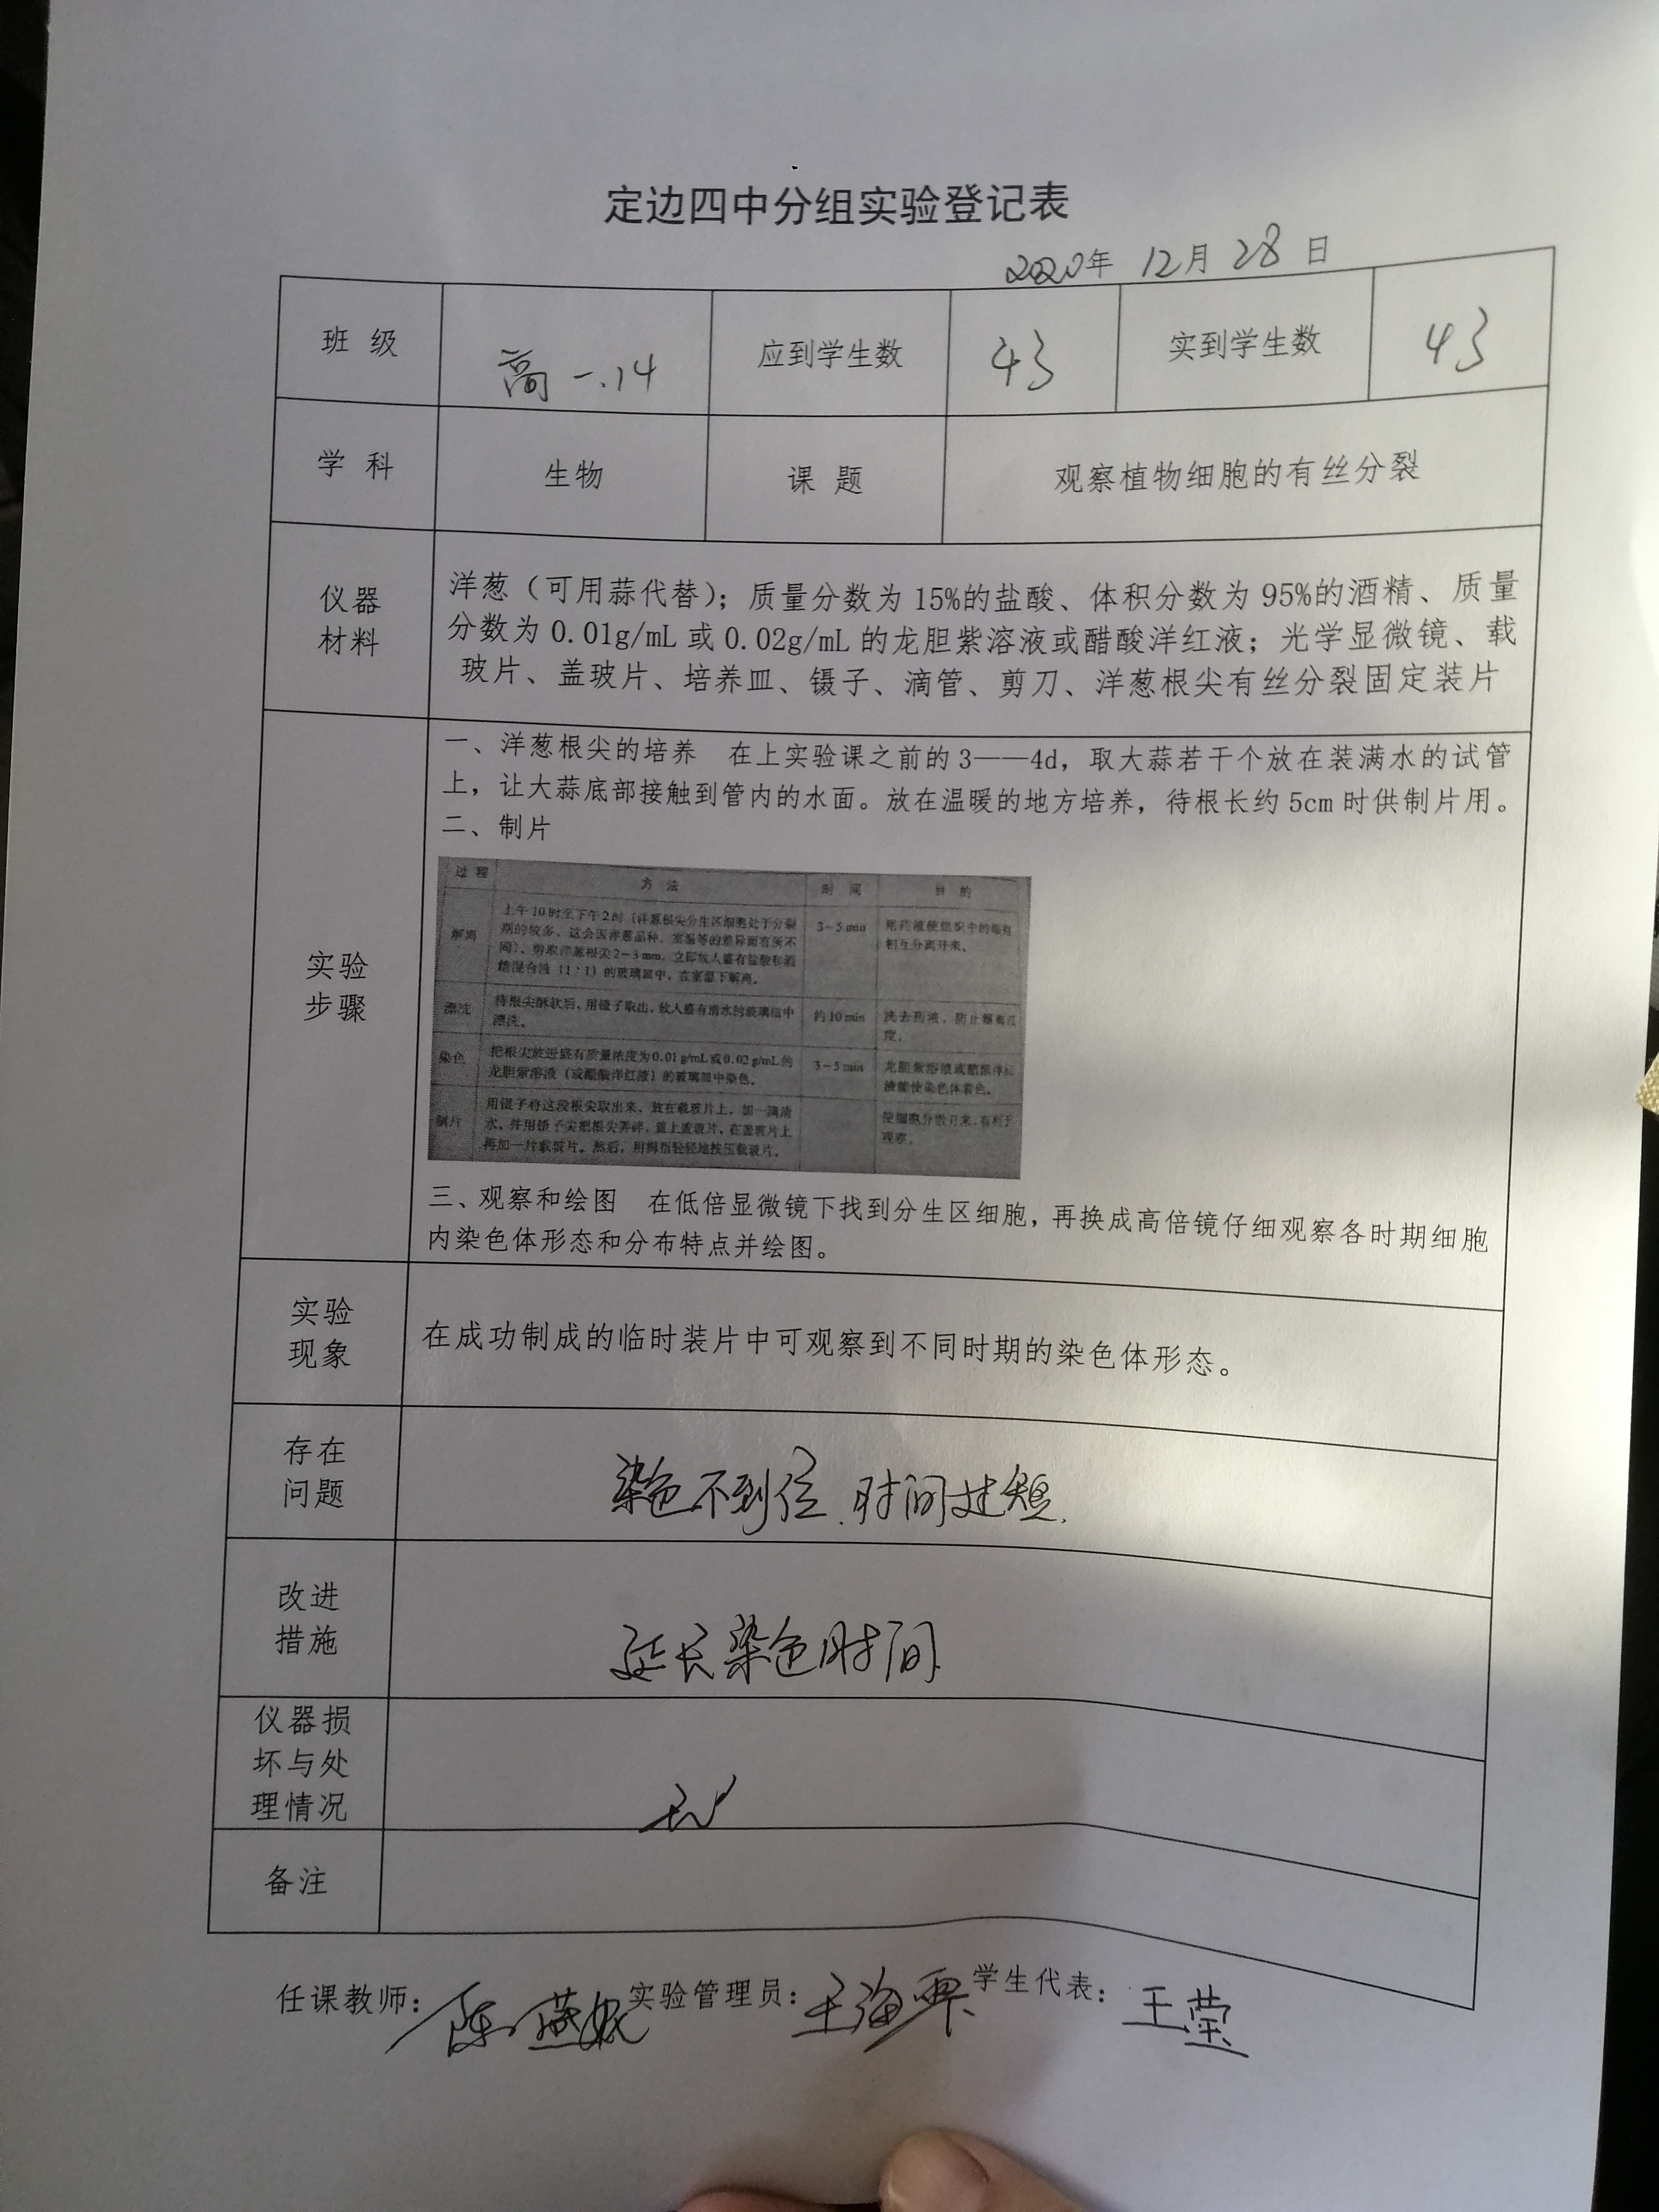 定边四中分组实验登记表
2020年 12月 28日
班 级 高一.14 应到学生数 43 实到学生数 43
学 科 生物 课 题 观察植物细胞的有丝分裂
仪器
材料
洋葱（可用蒜代替）；质量分数为15%的盐酸、体积分数为95%的酒精、质量
分数为0.01g/mL或0.02g/mL的龙胆紫溶液或醋酸洋红液；光学显微镜、载
玻片、盖玻片、培养皿、镊子、滴管、剪刀、洋葱根尖有丝分裂固定装片
实验
步骤
一、洋葱根尖的培养 在上实验课之前的3——4d，取大蒜若干个放在装满水的试管
上，让大蒜底部接触到管内的水面。放在温暖的地方培养，待根长约5cm时供制片用。
二、制片
过 程 方 法 时 间 目 的
解离
上午10时至下午2时（洋葱根尖分生区细胞处于分裂
期的较多，这会因洋葱品种、室温等的差异而有所不
同），剪取洋葱根尖2~3 mm，立即放入盛有盐酸和酒
精混合液（1：1）的玻璃皿中，在室温下解离。
3~5 min
用药液使组织中的细胞
相互分离开来。
漂洗
待根尖酥软后，用镊子取出，放入盛有清水的玻璃皿中
漂洗。
约10 min
洗去药液，防止解离过
度。
染色
把根尖放进盛有质量浓度为0.01 g/mL或0.02 g/mL的
龙胆紫溶液（或醋酸洋红液）的玻璃皿中染色。
3~5 min
龙胆紫溶液或醋酸洋红
液能使染色体着色。
制片
用镊子将这段根尖取出来，放在载玻片上，加一滴清
水，并用镊子尖把根尖弄碎，盖上盖玻片，在盖玻片上
再加一片载玻片。然后，用拇指轻轻地按压载玻片。
使细胞分散开来，有利于
观察。
三、观察和绘图 在低倍显微镜下找到分生区细胞，再换成高倍镜仔细观察各时期细胞
内染色体形态和分布特点并绘图。
实验
现象
在成功制成的临时装片中可观察到不同时期的染色体形态。
存在
问题
染色不到位、时间过短.
改进
措施
延长染色时间.
仪器损
坏与处
理情况
无
备注
任课教师： 陈燕妮 实验管理员： 王海 学生代表： 王莹